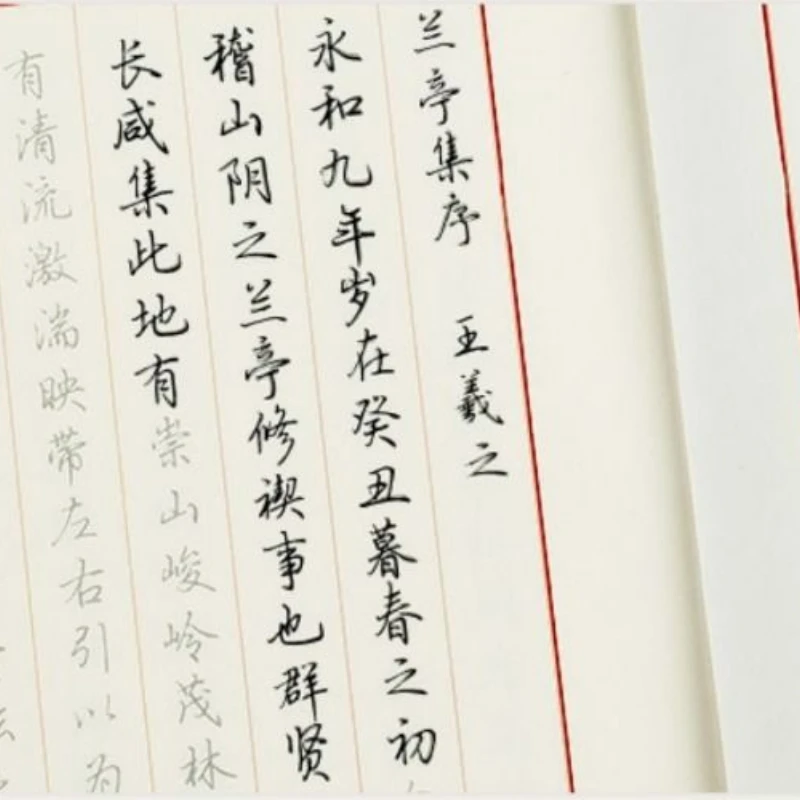 兰亭集序 王羲之
永和九年岁在癸丑暮春之初
稽山阴之兰亭修禊事也群贤
长咸集此地有崇山峻岭茂林
有清流激湍映带左右引以为